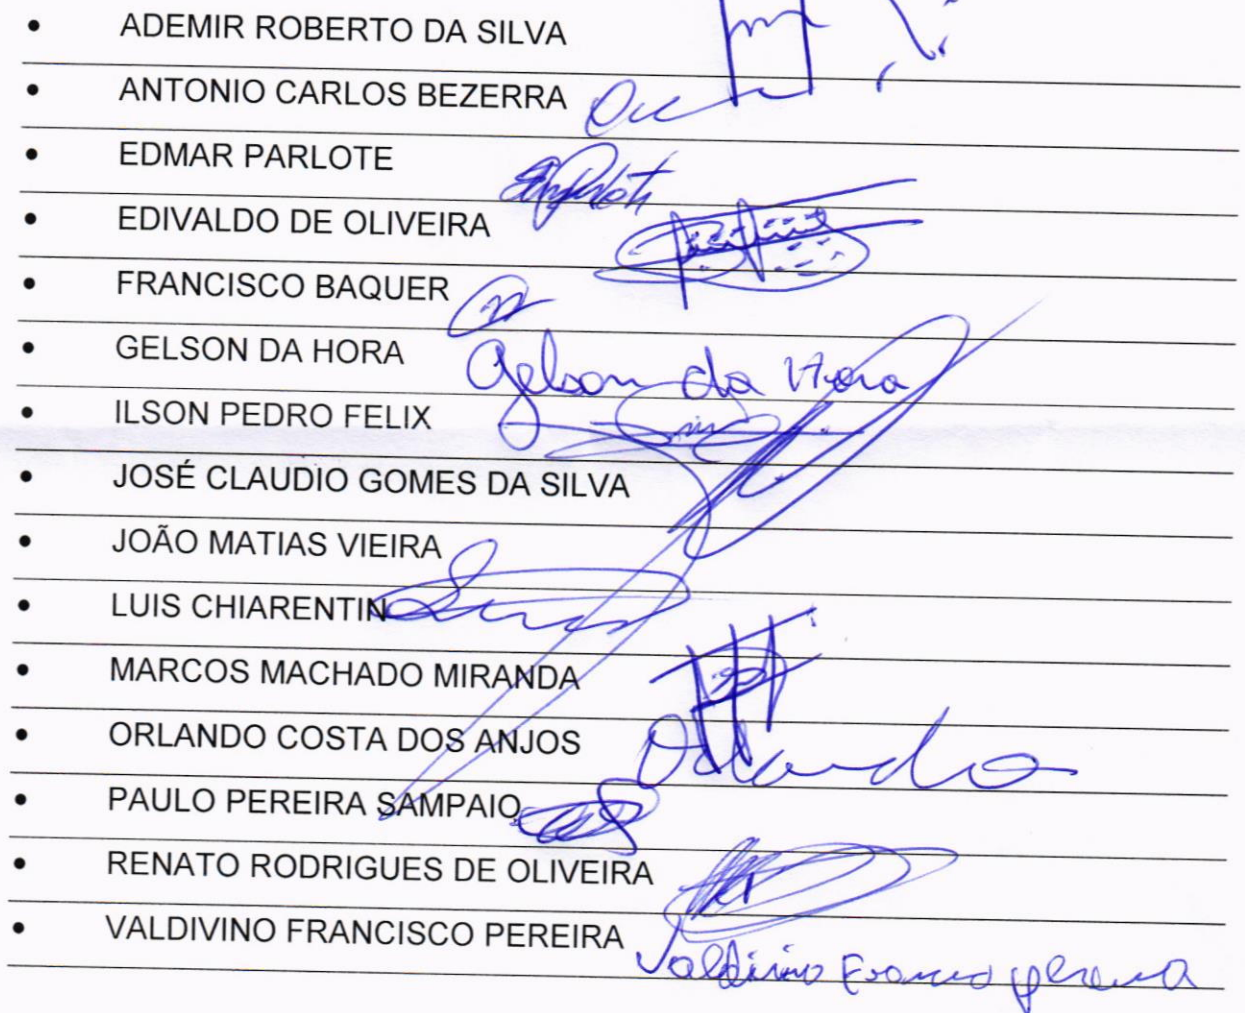 • ADEMIR ROBERTO DA SILVA
• ANTONIO CARLOS BEZERRA
• EDMAR PARLOTE
• EDIVALDO DE OLIVEIRA
• FRANCISCO BAQUER
• GELSON DA HORA Gelson da Hora
• ILSON PEDRO FELIX
• JOSÉ CLAUDIO GOMES DA SILVA
• JOÃO MATIAS VIEIRA
• LUIS CHIARENTIN
• MARCOS MACHADO MIRANDA
• ORLANDO COSTA DOS ANJOS Orlando
• PAULO PEREIRA SAMPAIO
• RENATO RODRIGUES DE OLIVEIRA
• VALDIVINO FRANCISCO PEREIRA Valdivino